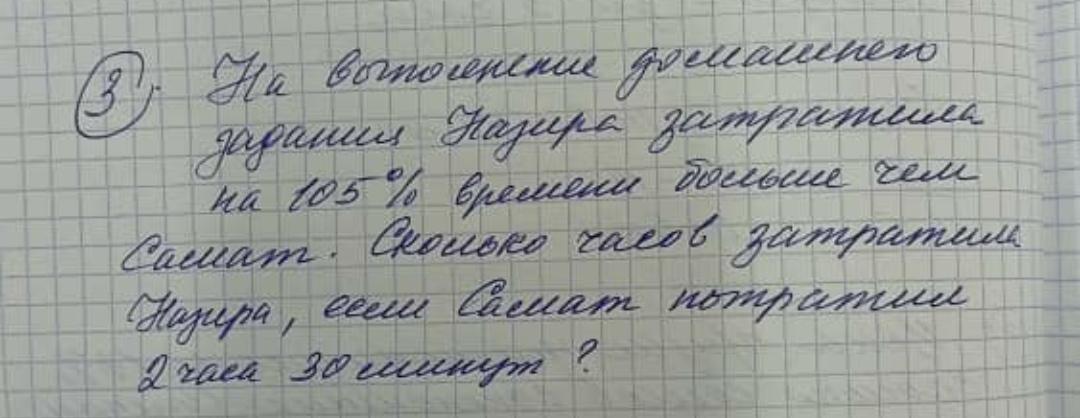 3. На выполнение домашнего
задания Назира затратила
на 105% времени больше чем
Самат. Сколько часов затратила
Назира, если Самат потратил
2 часа 30 минут?